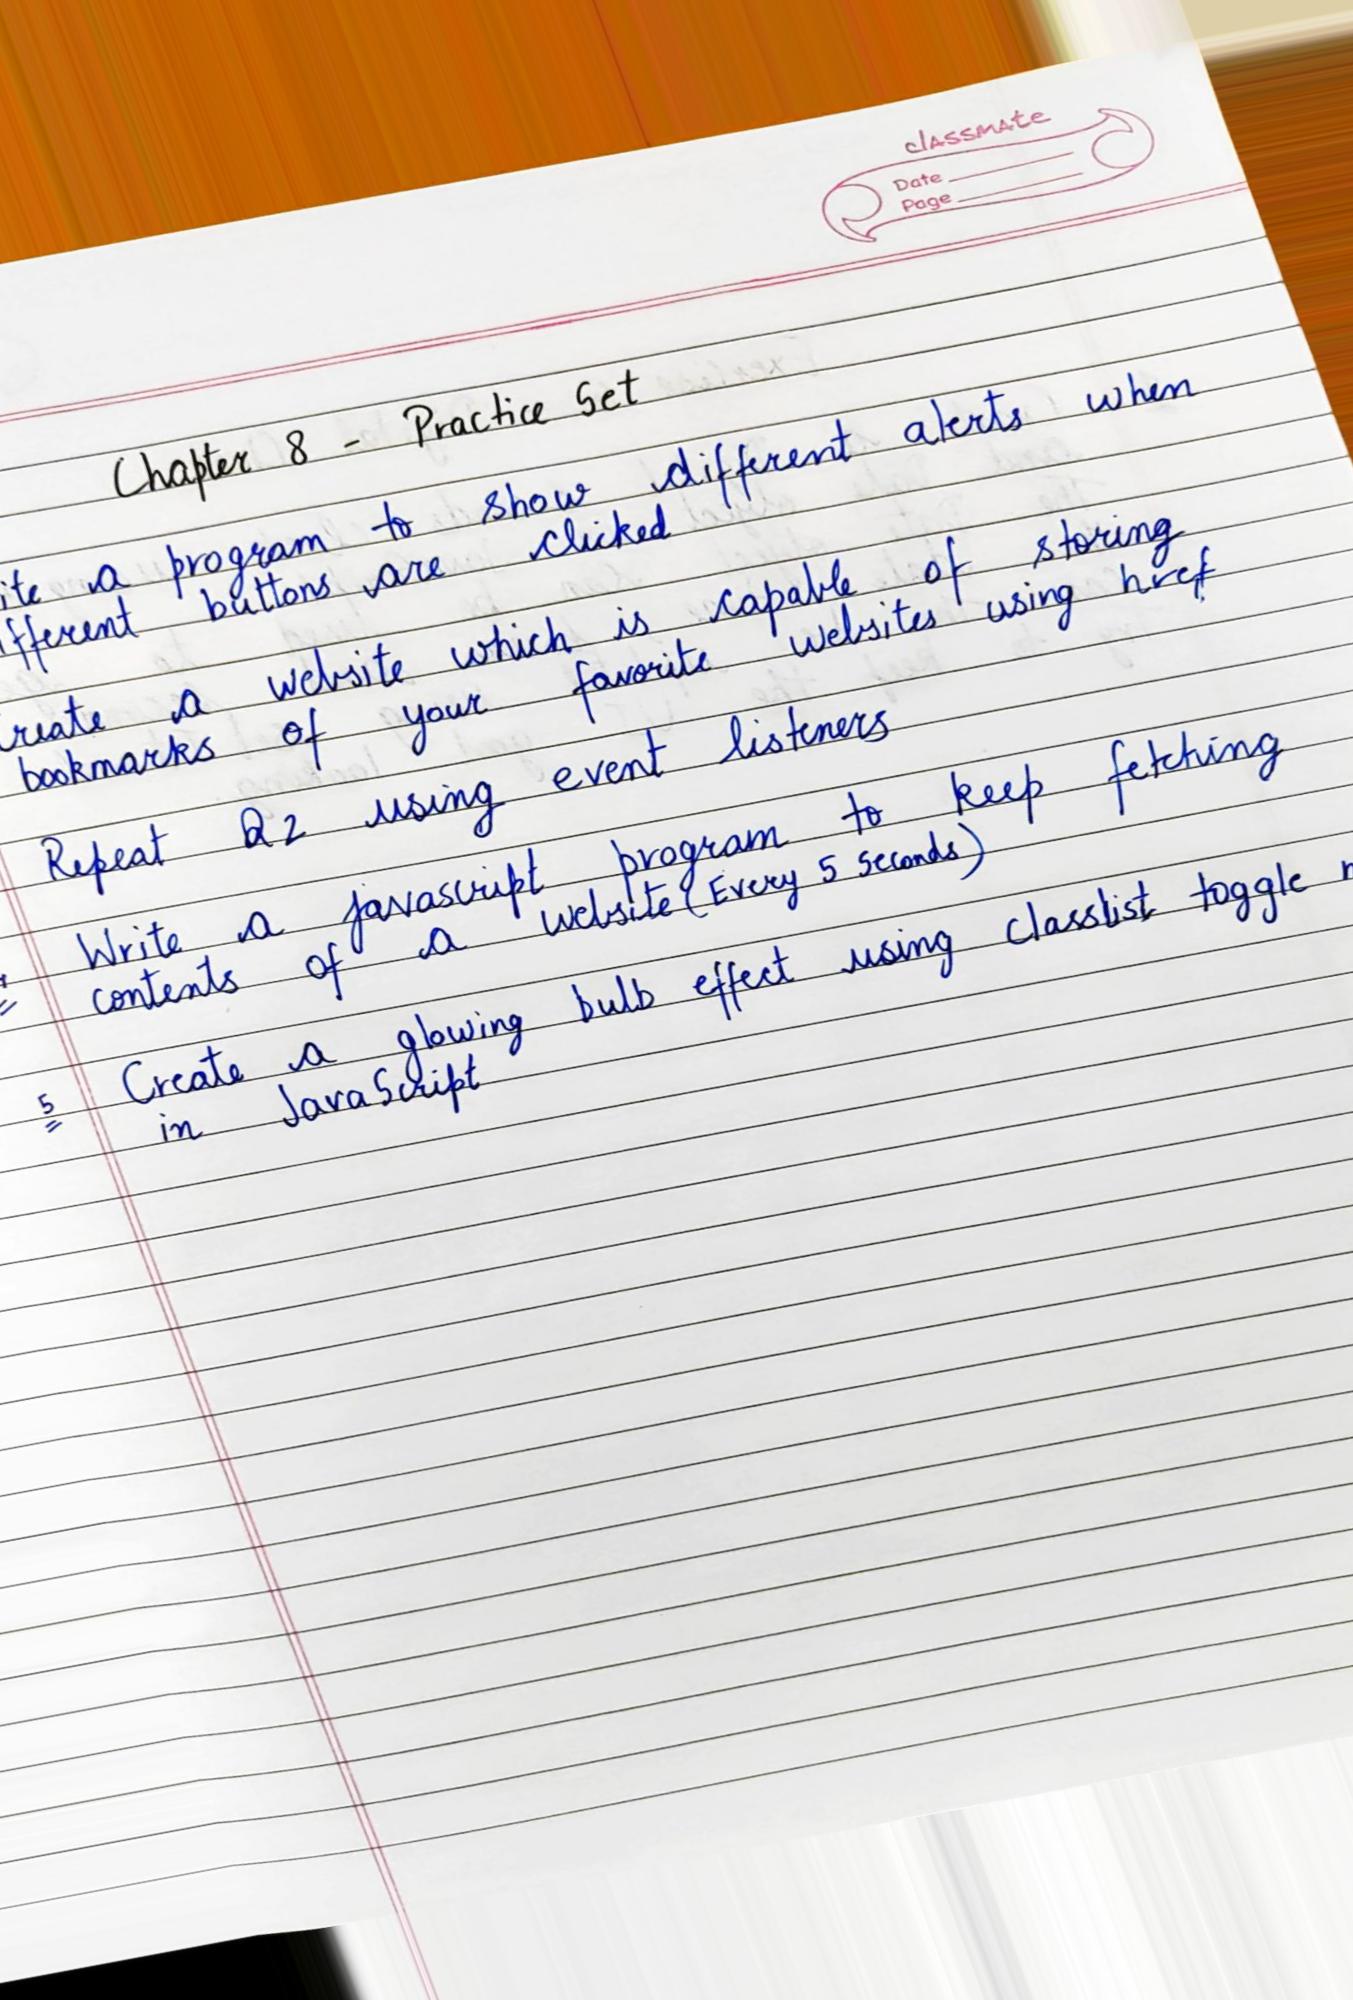 classmate
Date
Page
Chapter 8 - Practice Set
ite a program to show different alerts when
ifferent buttons are clicked
reate a website which is capable of storing
bookmarks of your favorite websites using href
Repeat Q2 using event listeners
Write a javascript program to keep fetching
contents of a website (Every 5 seconds)
5 Create a glowing bulb effect using classlist toggle
in JavaScript